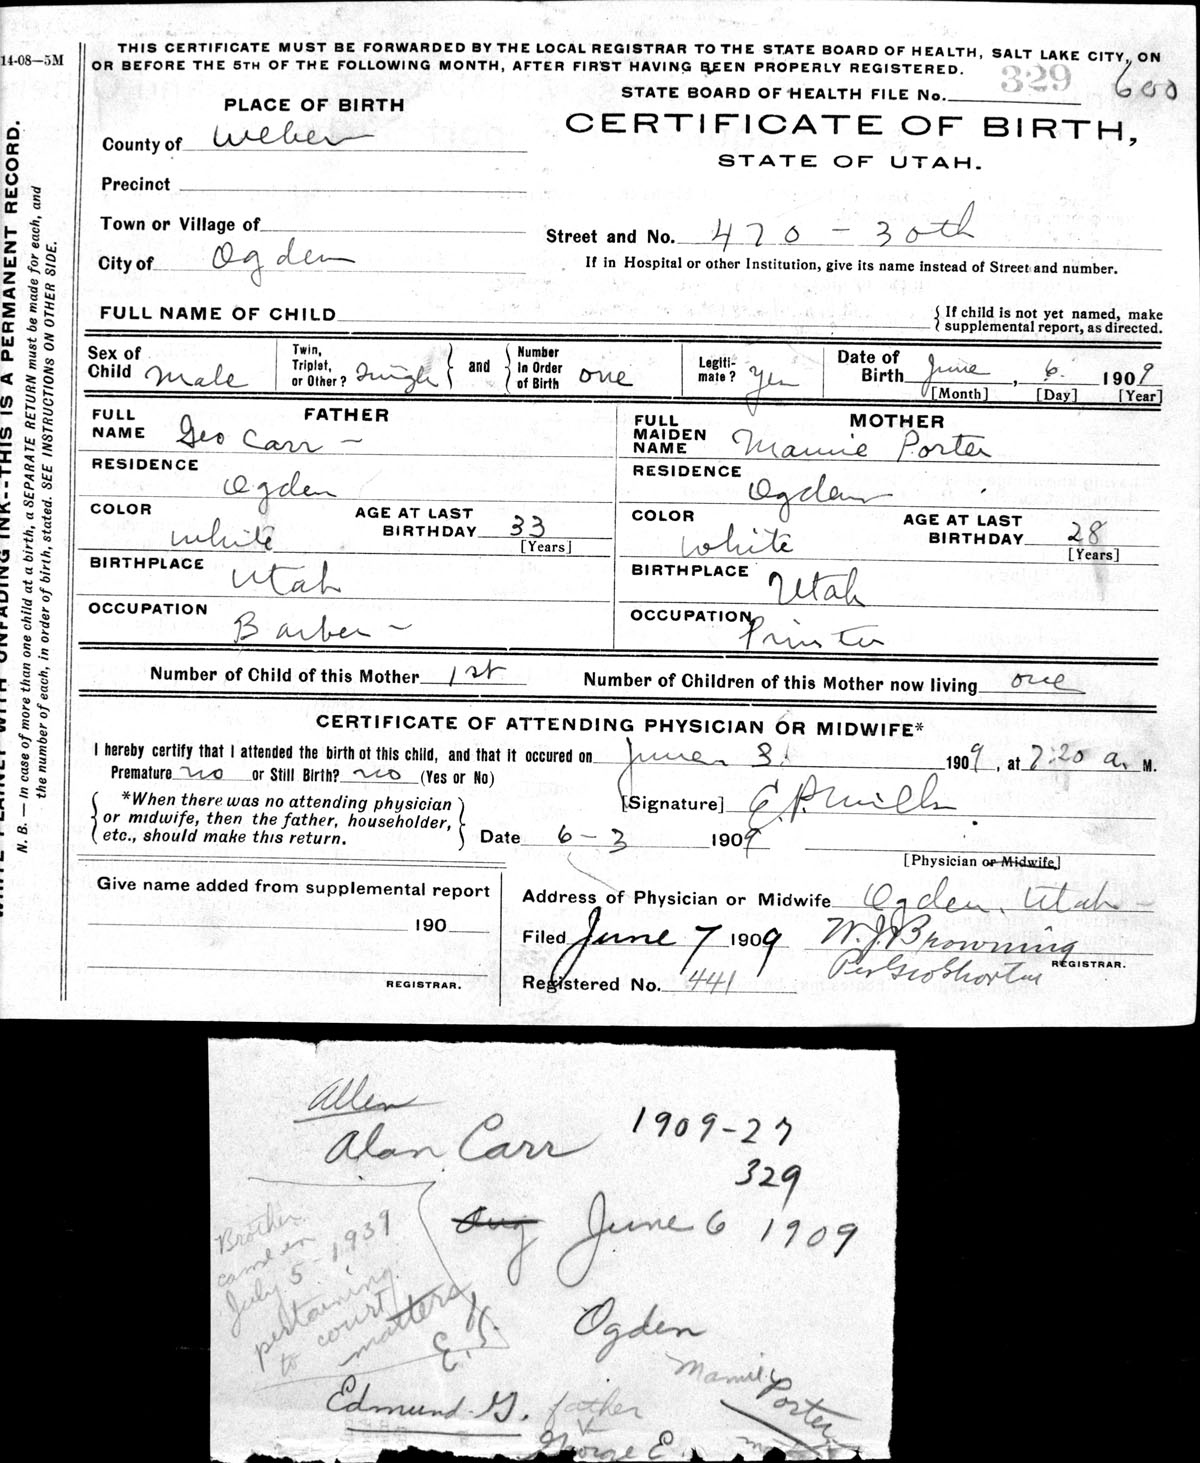 14-08—5M
THIS CERTIFICATE MUST BE FORWARDED BY THE LOCAL REGISTRAR TO THE STATE BOARD OF HEALTH, SALT LAKE CITY, ON
OR BEFORE THE 5TH OF THE FOLLOWING MONTH, AFTER FIRST HAVING BEEN PROPERLY REGISTERED.
STATE BOARD OF HEALTH FILE No. 329 600
PLACE OF BIRTH
CERTIFICATE OF BIRTH,
STATE OF UTAH.
County of Weber
Precinct
Town or Village of
Street and No. 470 - 30th
City of Ogden
If in Hospital or other Institution, give its name instead of Street and number.
FULL NAME OF CHILD
{ If child is not yet named, make
supplemental report, as directed.
Sex of Child Male
Twin, Triplet, or Other? Single } and { Number In Order of Birth one
Legiti-mate? Yes
Date of Birth June, 6. 1909
[Month] [Day] [Year]
FATHER
FULL NAME Geo Carr -
RESIDENCE Ogden
COLOR white
AGE AT LAST BIRTHDAY 33
[Years]
BIRTHPLACE Utah
OCCUPATION Barber -
MOTHER
FULL MAIDEN NAME Mamie Porter
RESIDENCE Ogden
COLOR white
AGE AT LAST BIRTHDAY 28
[Years]
BIRTHPLACE Utah
OCCUPATION Printer
Number of Child of this Mother 1st
Number of Children of this Mother now living one
CERTIFICATE OF ATTENDING PHYSICIAN OR MIDWIFE*
I hereby certify that I attended the birth of this child, and that it occured on June 3. 1909, at 7:20 a. M.
Premature no or Still Birth? no (Yes or No)
{ *When there was no attending physician
or midwife, then the father, householder,
etc., should make this return. }
[Signature] E. P. Mills
Date 6-3 1909
[Physician or Midwife]
Give name added from supplemental report
190
REGISTRAR.
Address of Physician or Midwife Ogden, Utah -
Filed June 7 1909 W. J. Browning
REGISTRAR.
Per Geo Shorten
Registered No. 441
WRITE PLAINLY WITH UNFADING INK--THIS IS A PERMANENT RECORD.
N. B. — In case of more than one child at a birth, a SEPARATE RETURN must be made for each, and
the number of each, in order of birth, stated. SEE INSTRUCTIONS ON OTHER SIDE.
Allen
Alan Carr 1909-27
329
Aug June 6 1909
Brother
came in
July 5-1939
pertaining
to court
matters
E. K.
Ogden
Mamie Porter
Edmund G. father
George E.